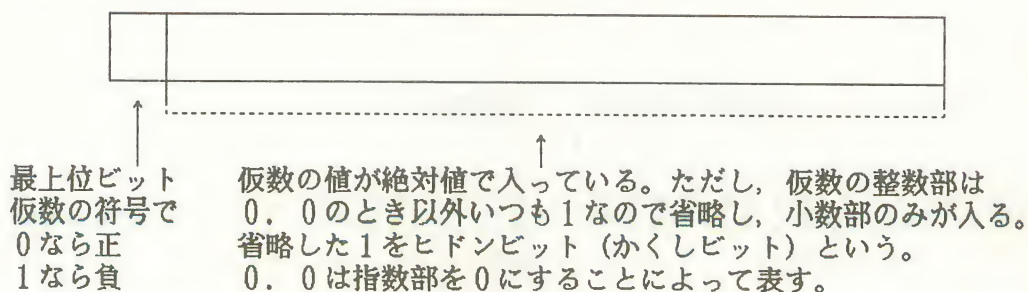 最上位ビット
仮数の符号で
0なら正
1なら負
仮数の値が絶対値で入っている。ただし,仮数の整数部は
0.0のとき以外いつも1なので省略し,小数部のみが入る。
省略した1をヒドンビット(かくしビット)という。
0.0は指数部を0にすることによって表す。